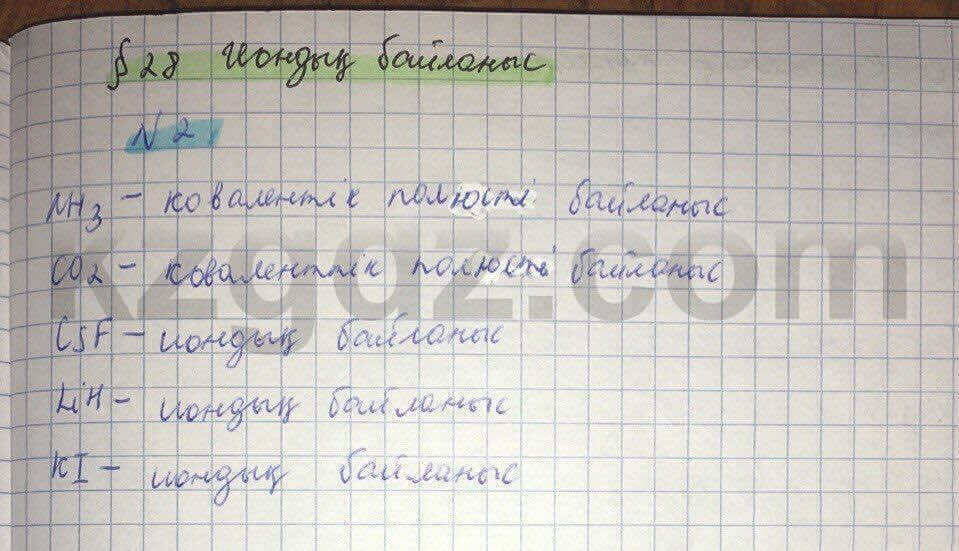 § 28 Иондық байланыс
№ 2
NH3 – ковалентік полюсті байланыс
CO2 – коваленттік полюсті байланыс
CsF – иондық байланыс
LiH – иондық байланыс
KI – иондық байланыс
kzgdz.com